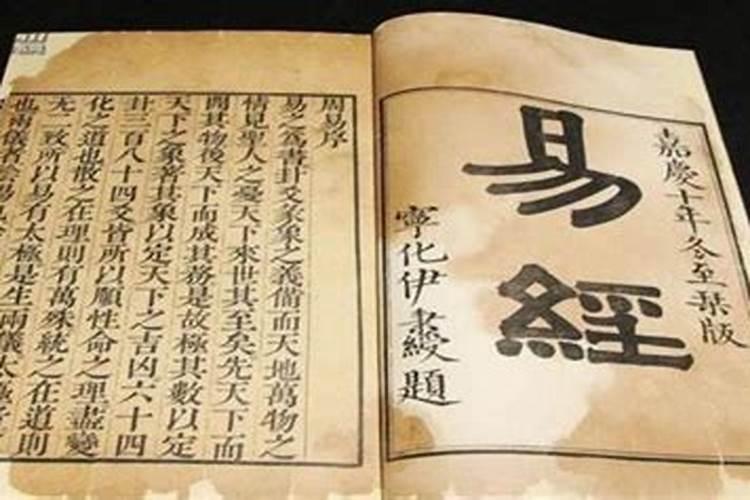 嘉慶十年冬至栞版
易經
寧化伊秉綬題
周易序
易之為書卦爻彖象之義備而天地萬物之
情見聖人之憂天下來世其至矣先天下而
開其物後天下而成其務是故極其數以定
天下之象著其象以定天下之吉凶六十四
卦三百八十四爻皆所以順性命之理盡變
化之道也散之在理則有萬殊統之在道則
无二致所以易有太極是生兩儀太極者
也兩儀者陰陽也